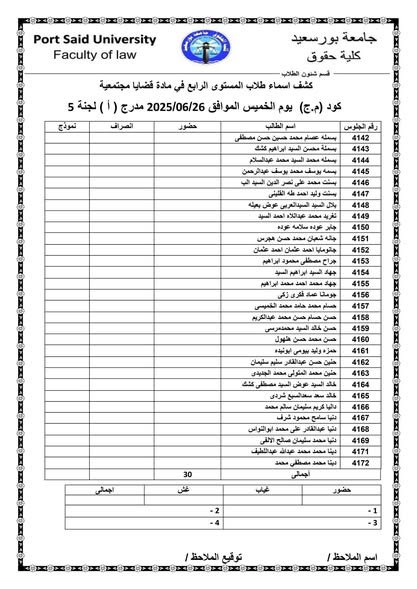 Port Said University
Faculty of law
جامعة بورسعيد
كلية حقوق
قسم شئون الطلاب
كشف اسماء طلاب المستوى الرابع في مادة قضايا مجتمعية
كود (م.ج) يوم الخميس الموافق 2025/06/26 مدرج ( أ ) لجنة 5
رقم الجلوس اسم الطالب حضور انصراف نموذج
4142 بسمله عصام محمد حسين حسن مصطفى
4143 بسملة محسن السيد ابراهيم كشك
4144 بسمله محمد السيد محمد عبدالسلام
4145 بسمه يوسف محمد يوسف عبدالرحمن
4146 بسنت محمد على نصر الدين السيد الب
4147 بسنت وليد احمد طه القلينى
4148 بلال السيد السيدالعربى عوض بعيله
4149 تغريد محمد عبداللاه احمد السيد
4150 جابر عوده سلامه عوده
4151 جانه شعبان محمد حسن هجرس
4152 جانومايا احمد عثمان احمد عثمان
4153 جراح مصطفى محمود ابراهيم
4154 جهاد السيد ابراهيم السيد
4155 جهاد محمد احمد محمد ابراهيم
4156 جومانا عماد فكرى زكى
4157 حسام محمد حامد محمد الخميسى
4158 حسن حسام حسن محمد عبدالكريم
4159 حسن خالد السيد محمدمرسى
4160 حسن محمد حسن هلهول
4161 حمزه وليد بيومى ابونيده
4162 حنين حسن عبدالقادر سليم سليمان
4163 حنين محمد المتولى محمد الجديدى
4164 خالد السيد عوض السيد مصطفى كشك
4165 خالد سعد سعدالسبع شردى
4166 داليا كريم سليمان سالم محمد
4167 دنيا سامح محمود شرف
4168 دنيا عبدالقادر على محمد ابوالنواس
4169 دنيا محمد سليمان صالح الالفى
4171 دينا محمد محمد عبدالله عبداللطيف
4172 دينا محمد مصطفى محمد
أجمالى 30
حضور غياب غش اجمالى
1 - 2 -
3 - 4 -
اسم الملاحظ / توقيع الملاحظ /